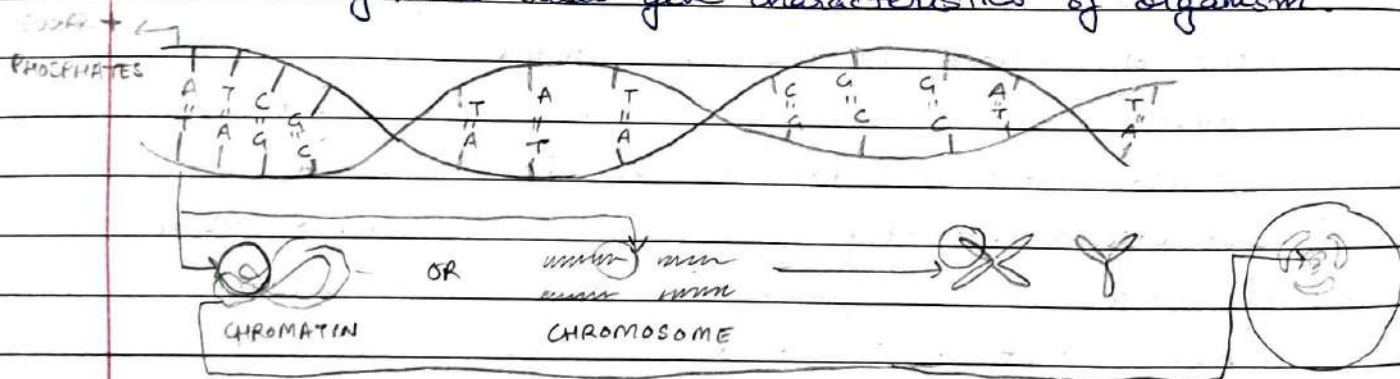 characteristics of organism.
SUGAR +
PHOSPHATES
A T C G T A T C G G A T
T A G C A T A G C C T A
OR
CHROMATIN CHROMOSOME